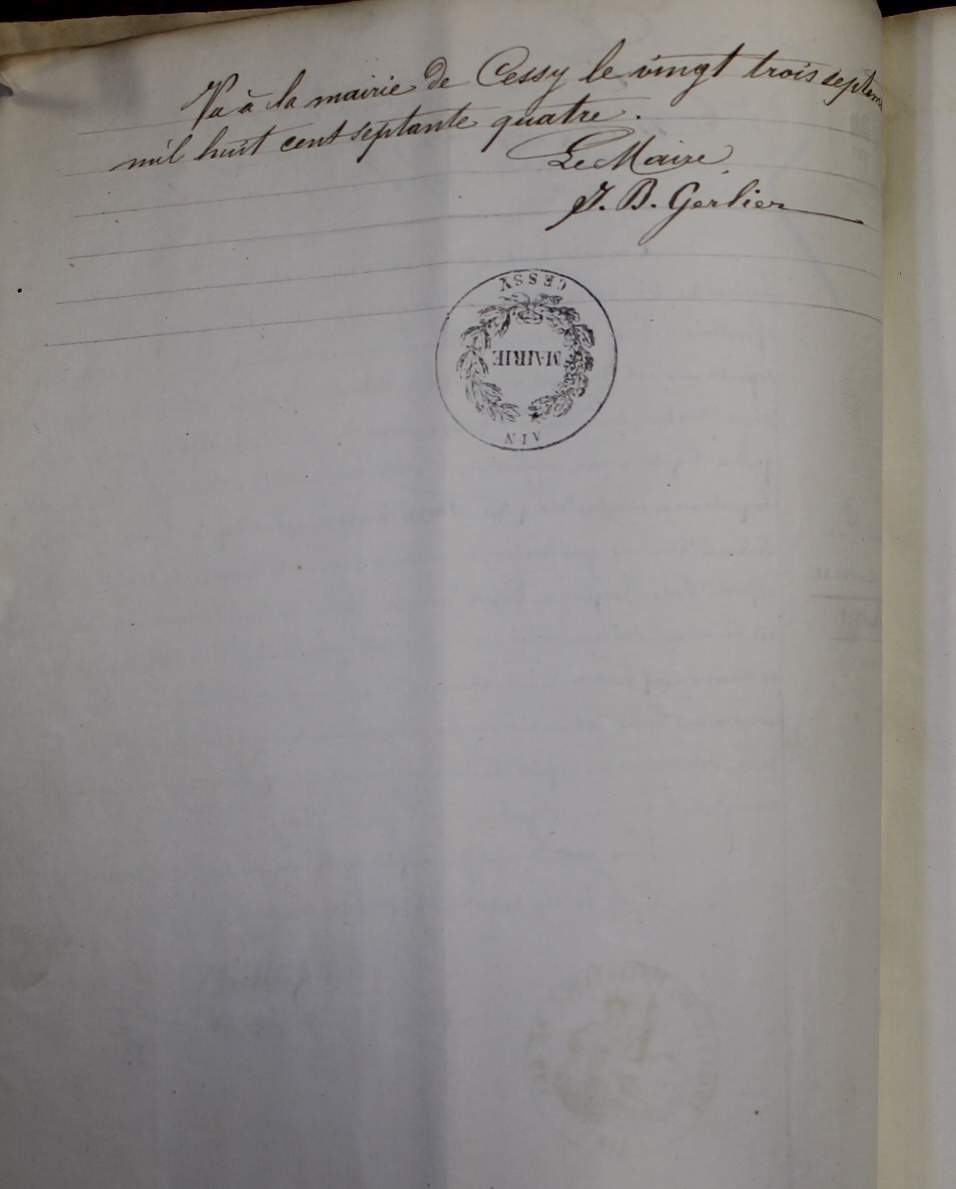 Vu à la mairie de Cessy le vingt trois septem
mil huit cent septante quatre.
Le Maire
J. B. Gerlier
CESSY
MAIRIE
AIN